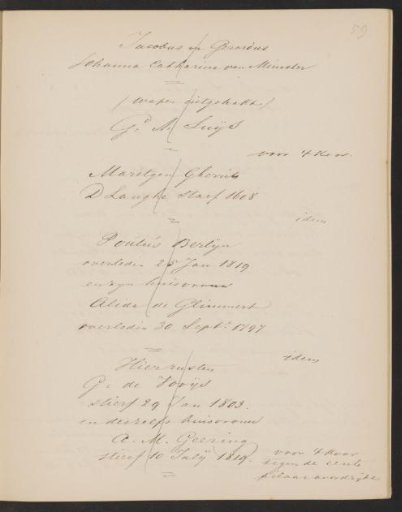 59
Jacobus en
Johanna Catharina van Munster
(wapen uitgehakt)
G. M. Suijs
voor 4 Koor
Marelgen
D Langhe starf 1608
idem
Poulus Bertyn
overleden 28 Jan 1819
en zijn huisvrouw
Alida de Glimmert
overleden 20 Sept. 1797
idem
Hier rusten
G. de Vooijs
stierf 29 Jan 1803.
en deszelfs huisvrouw
A. M. Geering
stierf 10 Julij 1819.
voor 4 Koor
tegen de eerste
pilaar noordzijde